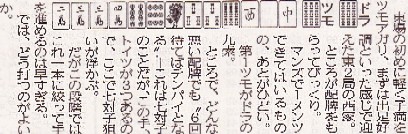 東場の初めに軽く千両を
ツモアガリ、まずは出足好
調といった感じで迎
えた東2局の西家。
ところが配牌をも
らってびっくり。
マンズで一メンツ
できてはいるもの
の、あとがひどい。
第1ツモがドラの
九索。
ところで、どんな
悪い配牌でも、“6回
待てばテンパイとな
る”—これは七対子
のことだが、この手、
トイツが3つあるの
で、ここで七対子狙
いが浮かぶ。
だがこの段階では
これ一本に絞って手
を進めるのは早すぎる。
では、どう打つのがよい
か。
ドラ
ツモ
西
中